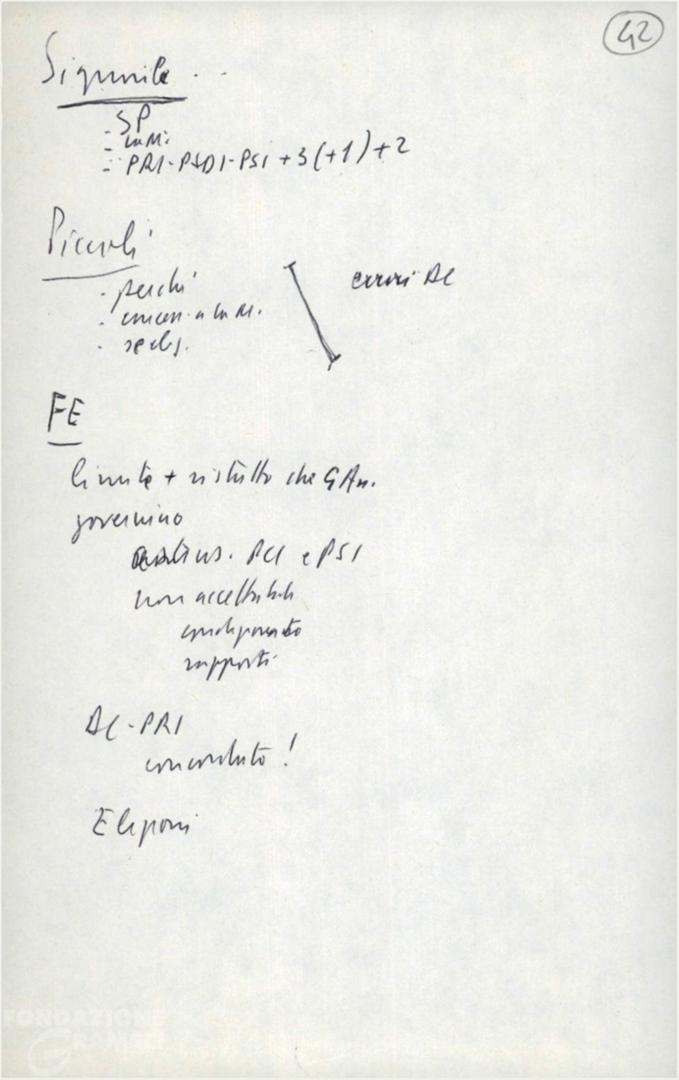 42
Signorile . .
- SP
- La M.
- PRI-PSDI-PSI +3(+1)+2
Piccoli
- perché
- a La M.
errori DC
FE
limite + ristretto che GAn.
governino
PCI e PSI
non accettabile
congiunto
rapporti
DC-PRI
concordato!
Elezioni
FONDAZIONE
GRAMSCI